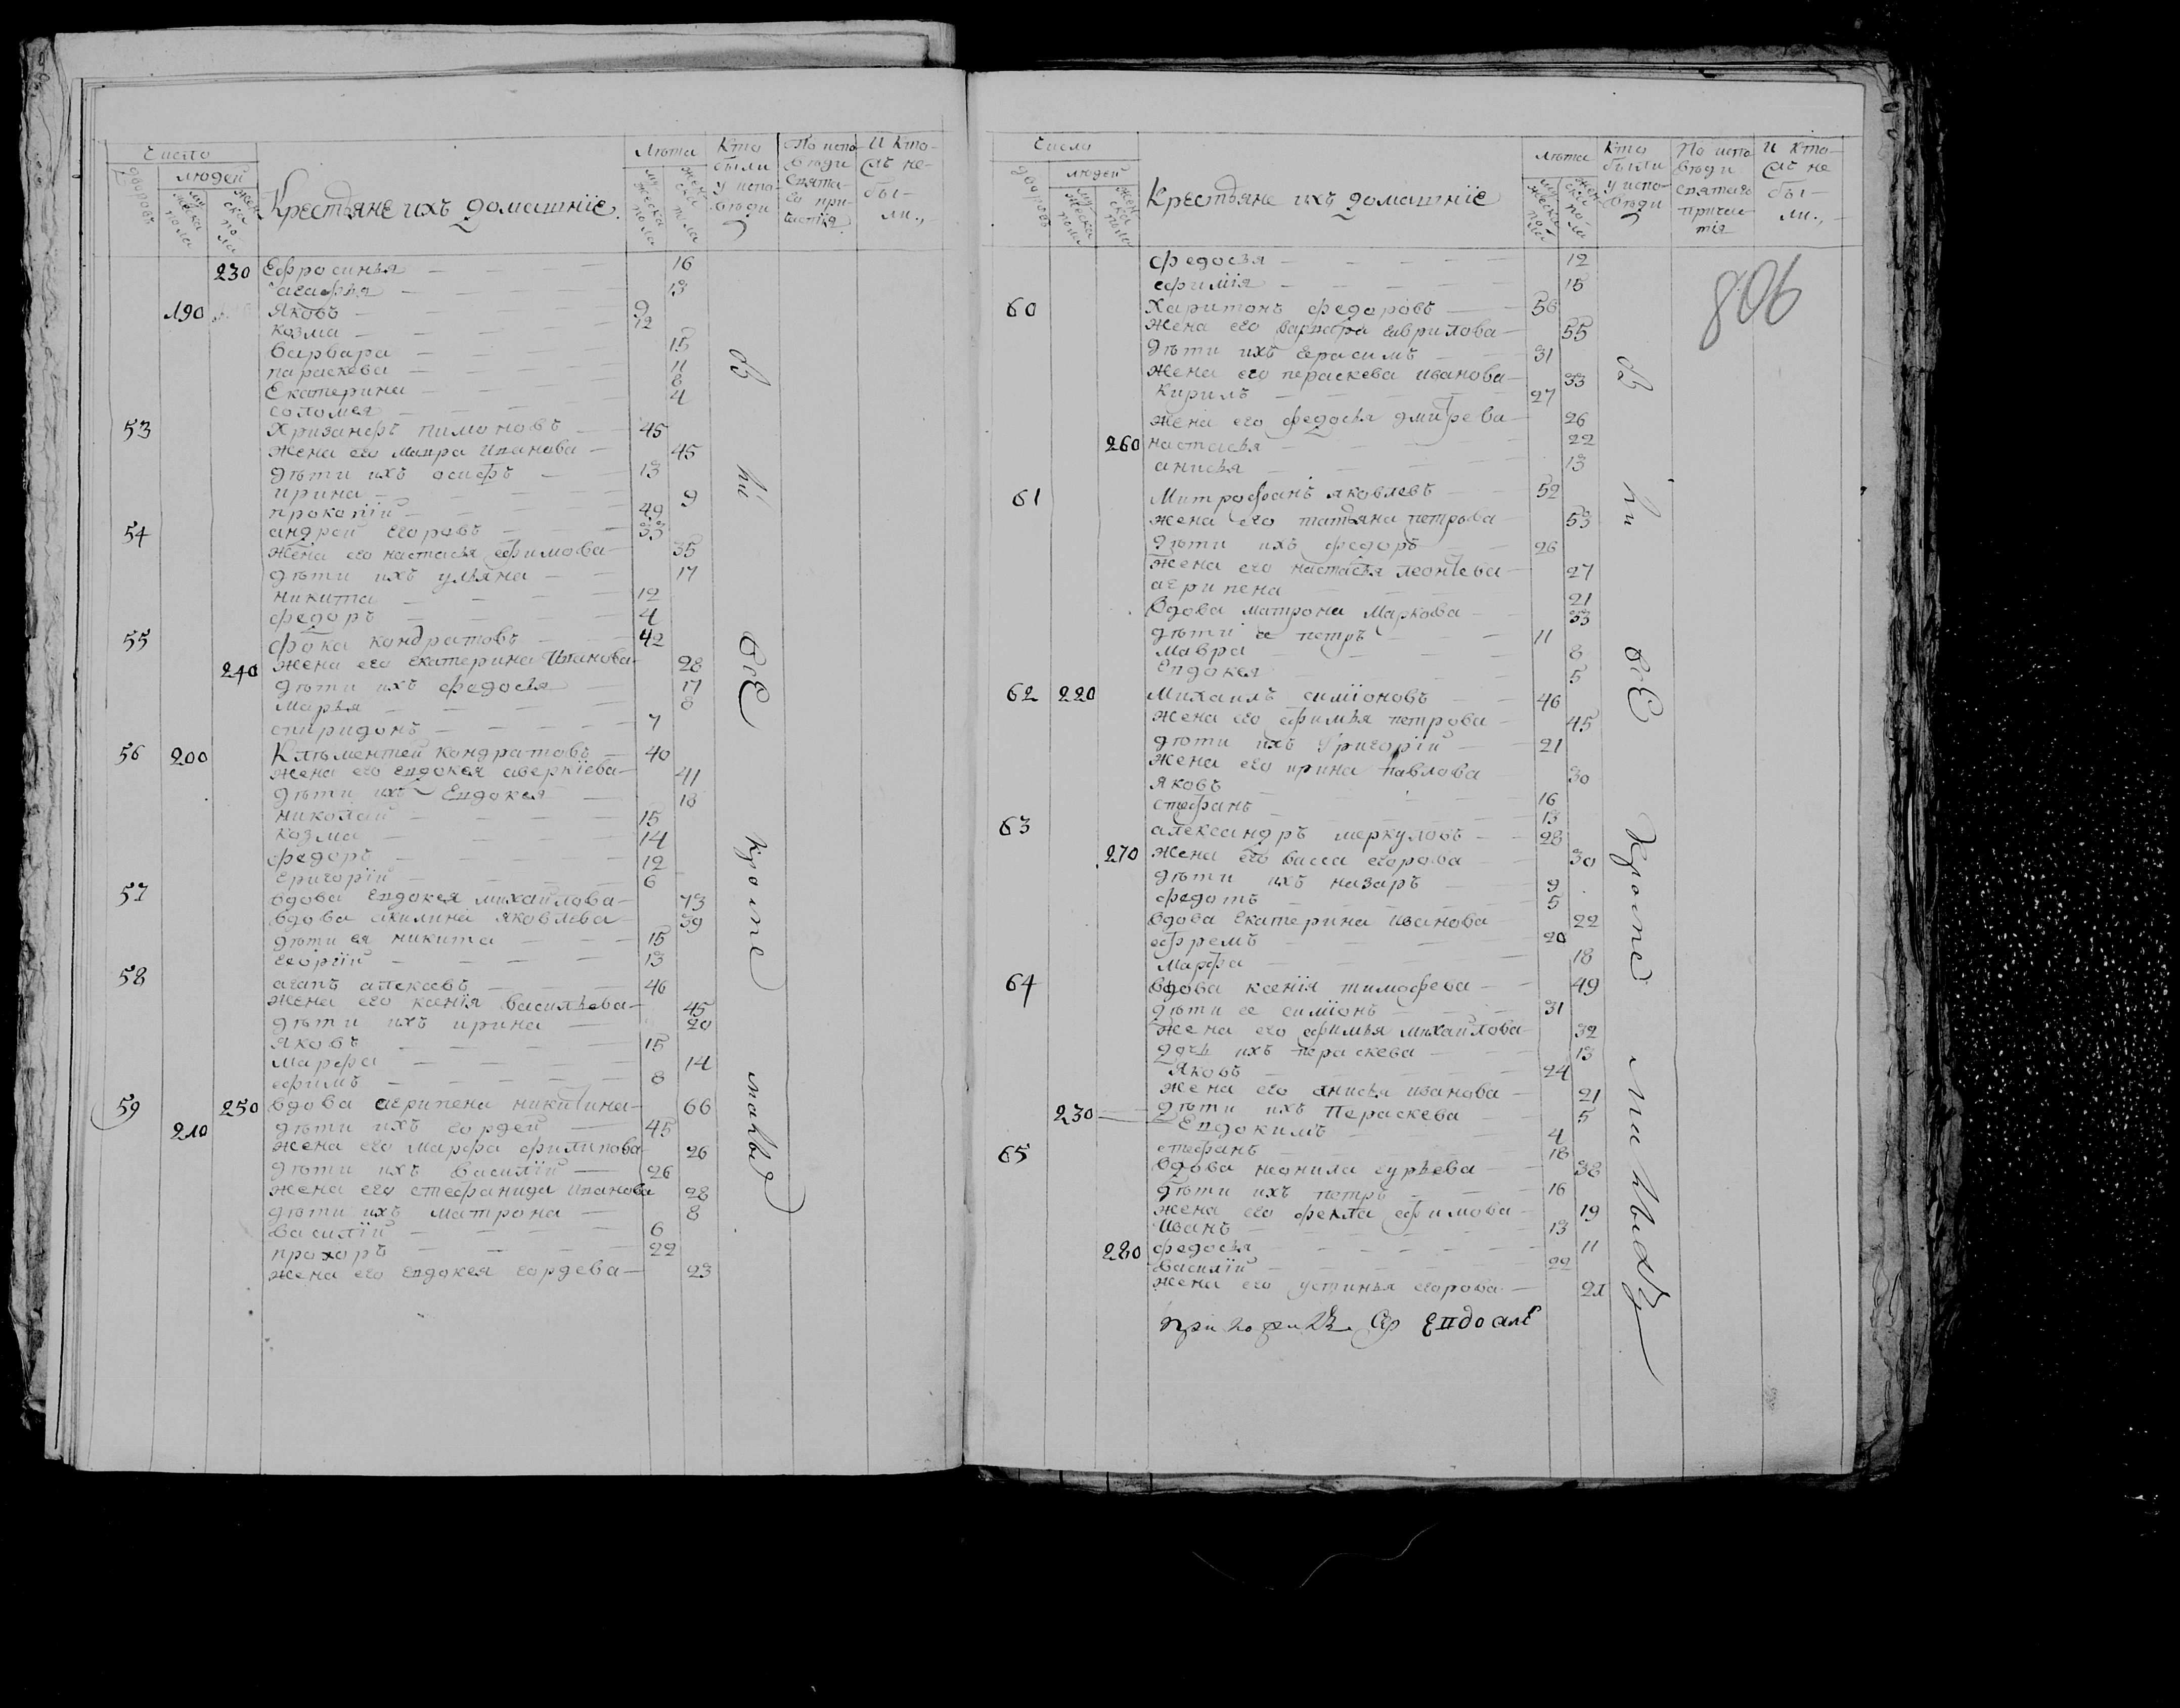 Число Крестьяне ихъ домашніе. Лѣта Кто были у исповѣди По исповѣди святаго причастія И кто сіе не были.
дворовъ людей мужеска пола женска пола мужеска пола женска пола
230 Ефросинья 16
агафья 13
190 Яковъ 9
козма 12
варвара 15
параскева 11
Екатерина 8
соломея 4
53 Хризанфъ пимоновъ 45
жена его мавра Иванова 45
дѣти ихъ осифъ 13
ирина 9
прокопій 49
54 андрей Егоровъ 33
жена его настасья Ефимова 35
дѣти ихъ ульяна 17
никита 12
федоръ 4
55 фока кондратовъ 42
240 жена его екатерина Иванова 28
дѣти ихъ федосья 17
марья 8
спиридонъ 7
56 200 Клѣментей кондратовъ 40
жена его Евдокея аверкіева 41
дѣти ихъ Евдокея 18
николай 15
козма 14
федоръ 12
григорій 6
57 вдова Евдокея михайлова 73
вдова акилина яковлева 39
дѣти ея никита 15
георгій 13
58 агапъ алексевъ 46
жена его ксенія васильева 45
дѣти ихъ ирина 20
яковъ 15
марфа 14
ефимъ 8
59 250 вдова агрипена никитина 66
210 дѣти ихъ гордей 45
жена его марфа филипова 26
дѣти ихъ василій 26
жена его стефанида Иванова 28
дѣти ихъ матрона 8
василій 6
прохоръ 22
жена его евдокея гордева 23
Число Крестьяне ихъ домашніе лѣта Кто были у исповѣди По исповѣди святаго причастія И кто сіе не были.
дворовъ людей мужеска пола женска пола мужеска пола женска пола
806
федосья 12
ефимія 15
60 Харитонъ федоровъ 56
жена его варвара гаврилова 55
дѣти ихъ герасимъ 31
жена его пераскева иванова 33
кирилъ 27
жена его федосья дмитрева 26
260 настасья 22
анисья 13
61 Митрофанъ яковлевъ 52
жена его татьяна петрова 53
дѣти ихъ федоръ 26
жена его настасья леонтева 27
агрипена 21
вдова матрона маркова 33
дѣти ее петръ 11
мавра 8
Евдокея 5
62 220 Михаилъ симіоновъ 46
жена его ефимья петрова 45
дѣти ихъ Григорій 21
жена его ирина павлова 30
яковъ 16
стефанъ 13
63 александръ меркуловъ 28
270 жена его васса егорова 30
дѣти ихъ назаръ 9
федотъ 5
вдова екатерина иванова 22
ефремъ 20
марфа 18
64 вдова ксенія тимофева 49
дѣти ее симіонъ 31
жена его ефимья михайлова 32
дочь ихъ пераскева 13
яковъ 24
жена его анисья иванова 21
230 дѣти ихъ пераскева 5
Евдокимъ 4
65 стефанъ 18
вдова неонила гурьева 38
дѣти ихъ петръ 16
жена его фекла ефимова 19
иванъ 13
280 федосья 11
василій 22
жена его устинья егорова 21